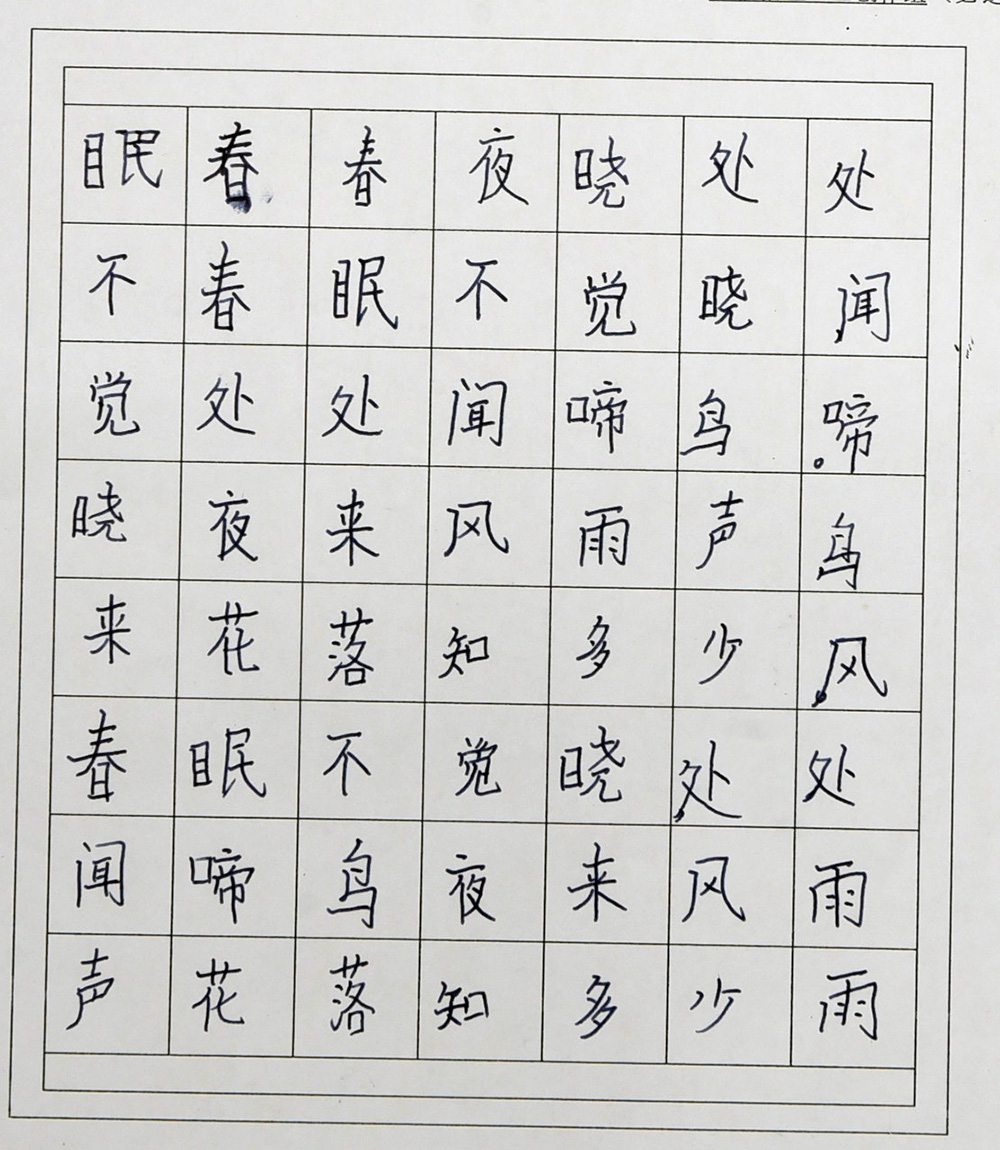 眠春春夜晓处处
不春眠不觉晓闻
觉处处闻啼鸟啼
晓夜来风雨声鸟
来花落知多少风
春眠不觉晓处处
闻啼鸟夜来风雨
声花落知多少雨